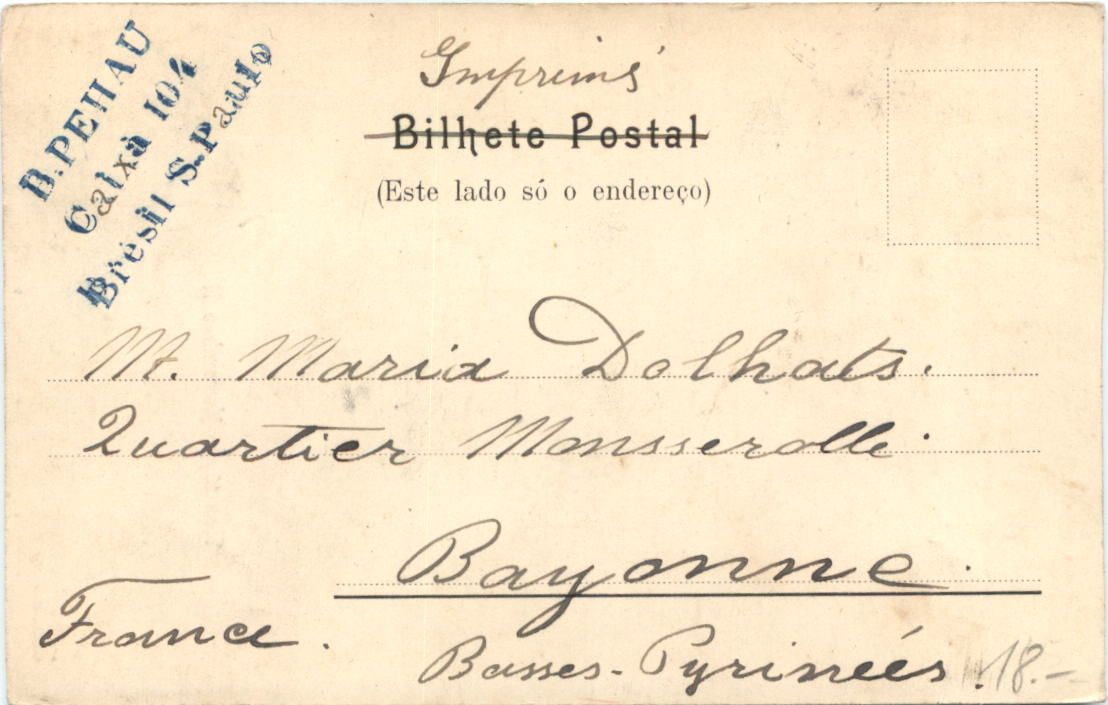 B. PEHAU
Caixà 104
Brésil S. Paulo
Imprimé
Bilhete Postal
(Este lado só o endereço)
M. Maria Dolhats.
Quartier Mousserolle.
Bayonne.
France.
Basses-Pyrineés.
18.-